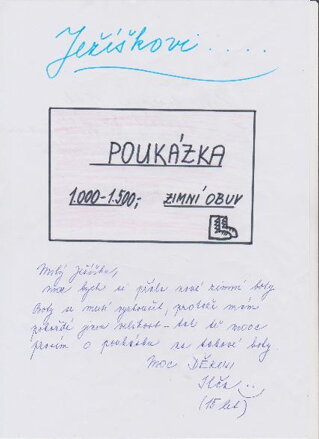 Ježíškovi.....
POUKÁZKA
1.000-1.500,- ZIMNÍ OBUV
Milý Ježíšku,
moc bych si přála nové zimní boty
Boty se musí vyzkoušet, protože mám
pokaždé jinou velikost - tak tě moc
prosím o poukázku na takové boty.
MOC DĚKUJI
(15 let)